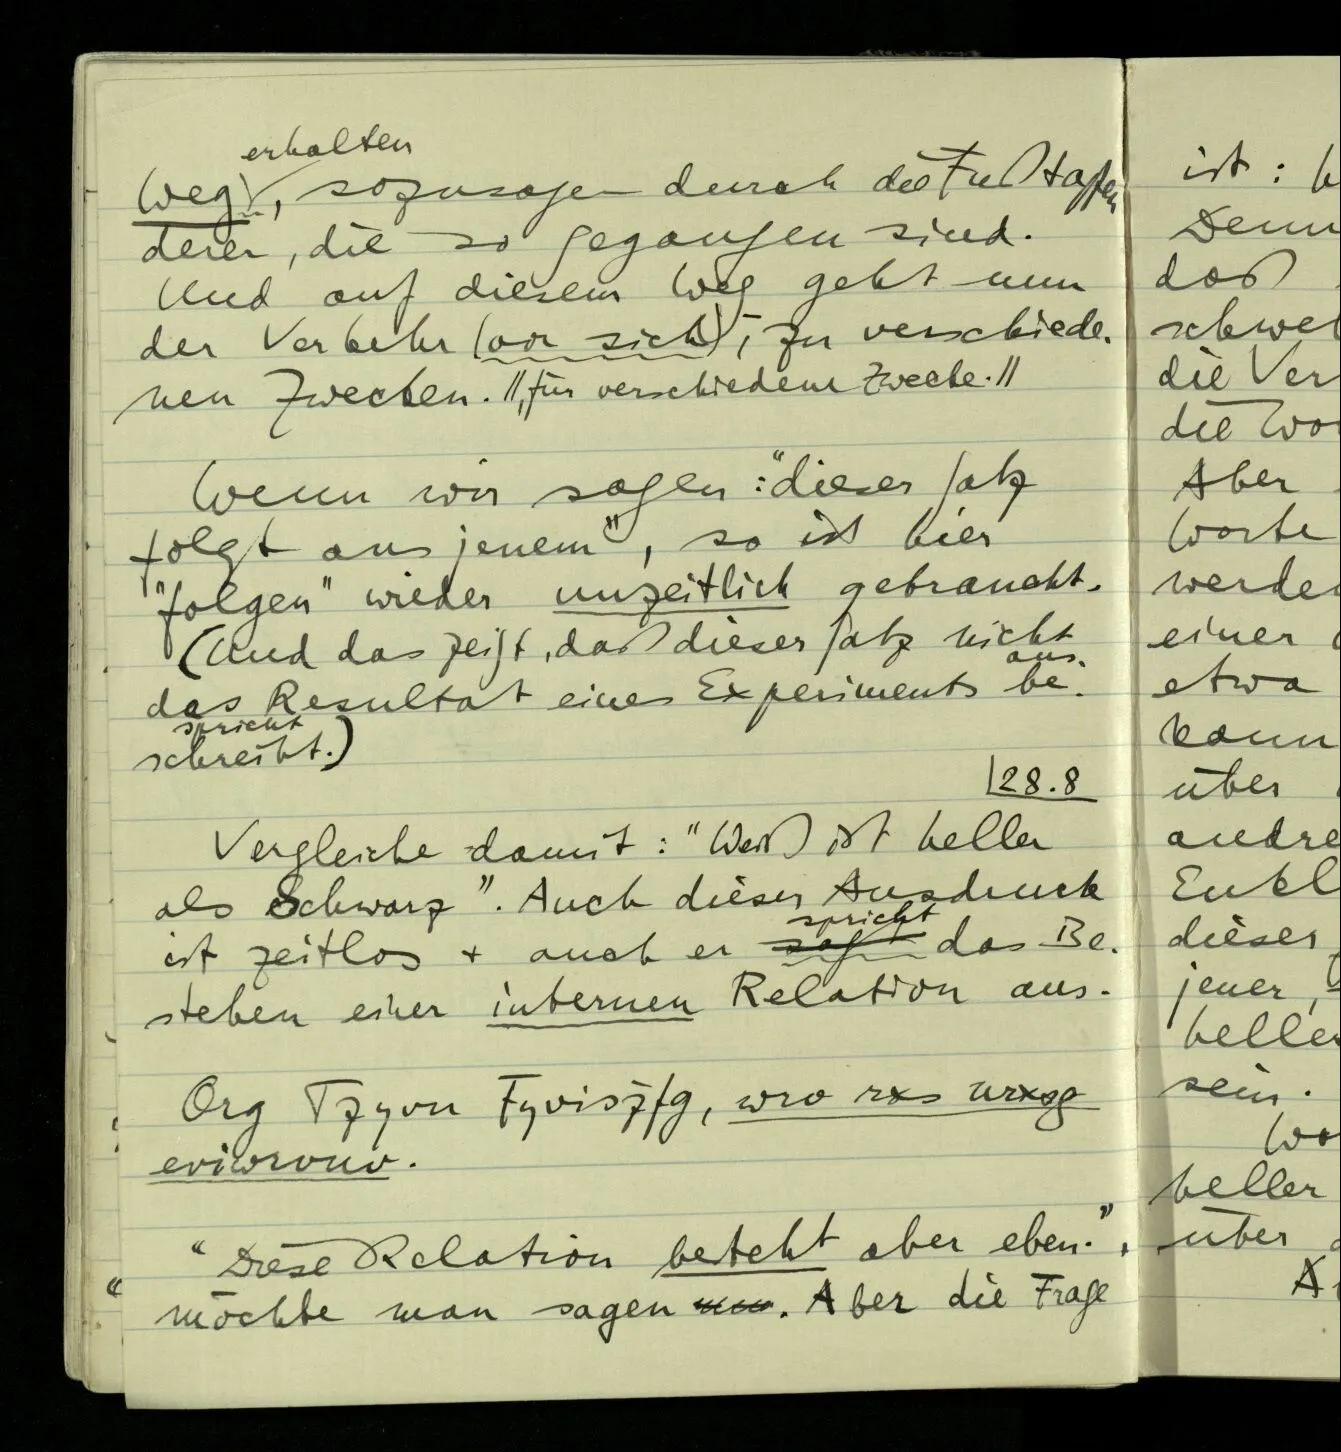 erhalten
Weg), sozusagen durch die Fußtapfen
derer, die so gegangen sind.
Und auf diesem Weg geht nun
der Verkehr (vor sich), zu verschiede-
nen Zwecken. //, für verschiedene Zwecke.//
Wenn wir sagen: "dieser Satz
folgt aus jenem", so ist hier
"folgen" wieder unzeitlich gebraucht.
(Und das zeigt, daß dieser Satz nicht
aus-
das Resultat eines Experiments be-
spricht
schreibt.)
28.8
Vergleiche damit: "Weiß ist heller
als Schwarz". Auch dieser Ausdruck
spricht
ist zeitlos + auch er sagt das Be-
stehen einer internen Relation aus.
Org Tzyvn
eviwrvnv.
"Diese Relation besteht aber eben",
möchte man sagen. Aber die Frage
ist:
Denn
daß
die Ver
die Wor
Aber
Worte
werden
einer
etwa
kann
über
andre
Eukl
dieser
jener,
heller
sein.
Wo
heller
über